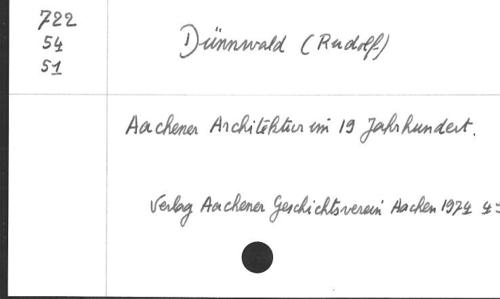 722
54
51
Dünnwald (Rudolf)
Aachener Architektur im 19 Jahrhundert.
Verlag Aachener Geschichtsverein Aachen 1974